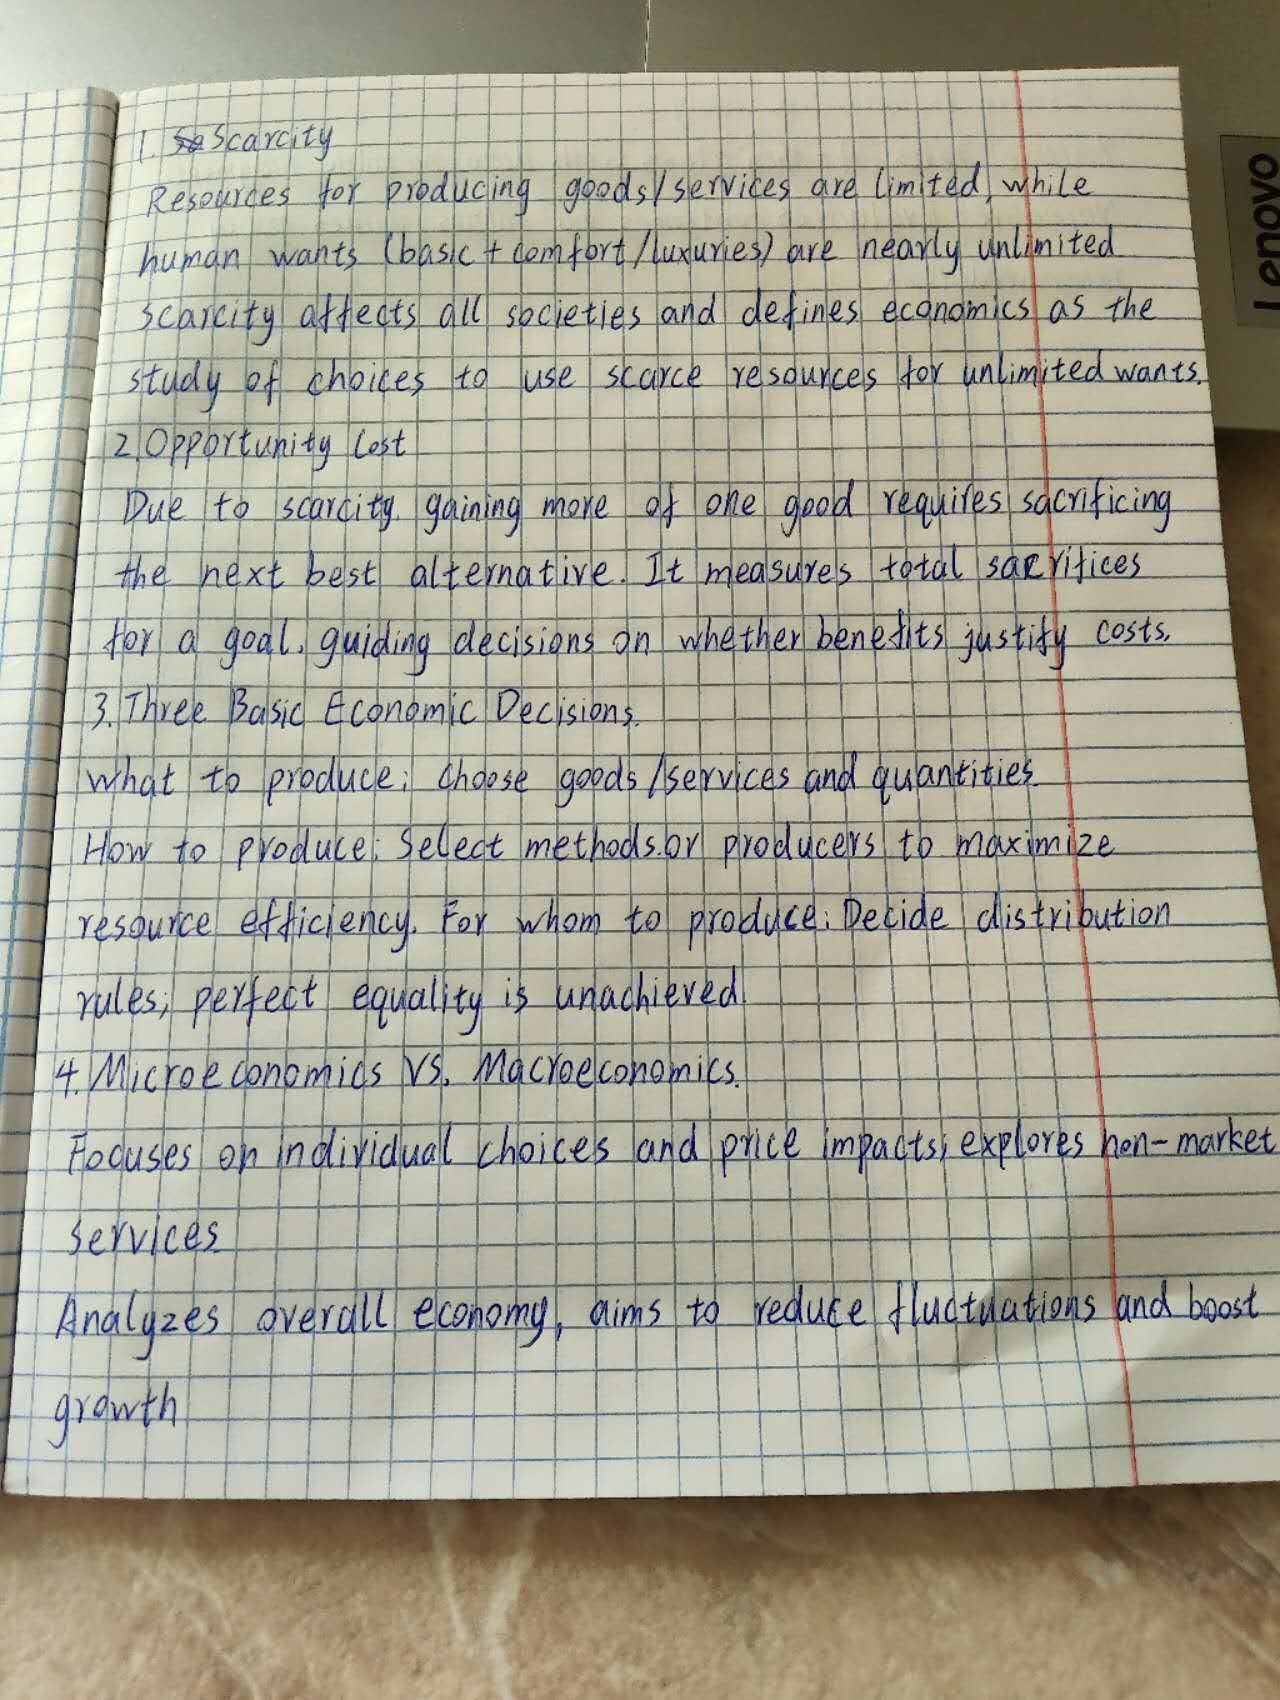 1. Scarcity
Resources for producing goods/services are limited, while
human wants (basic + comfort/luxuries) are nearly unlimited
scarcity affects all societies and defines economics as the
study of choices to use scarce resources for unlimited wants.
2. Opportunity Cost
Due to scarcity, gaining more of one good requires sacrificing
the next best alternative. It measures total sacrifices
for a goal, guiding decisions on whether benefits justify costs.
3. Three Basic Economic Decisions.
What to produce: Choose goods/services and quantities
How to produce: Select methods or producers to maximize
resource efficiency. For whom to produce: Decide distribution
rules; perfect equality is unachieved
4. Microeconomics VS. Macroeconomics.
Focuses on individual choices and price impacts; explores non-market
services
Analyzes overall economy, aims to reduce fluctuations and boost
growth
Lenovo